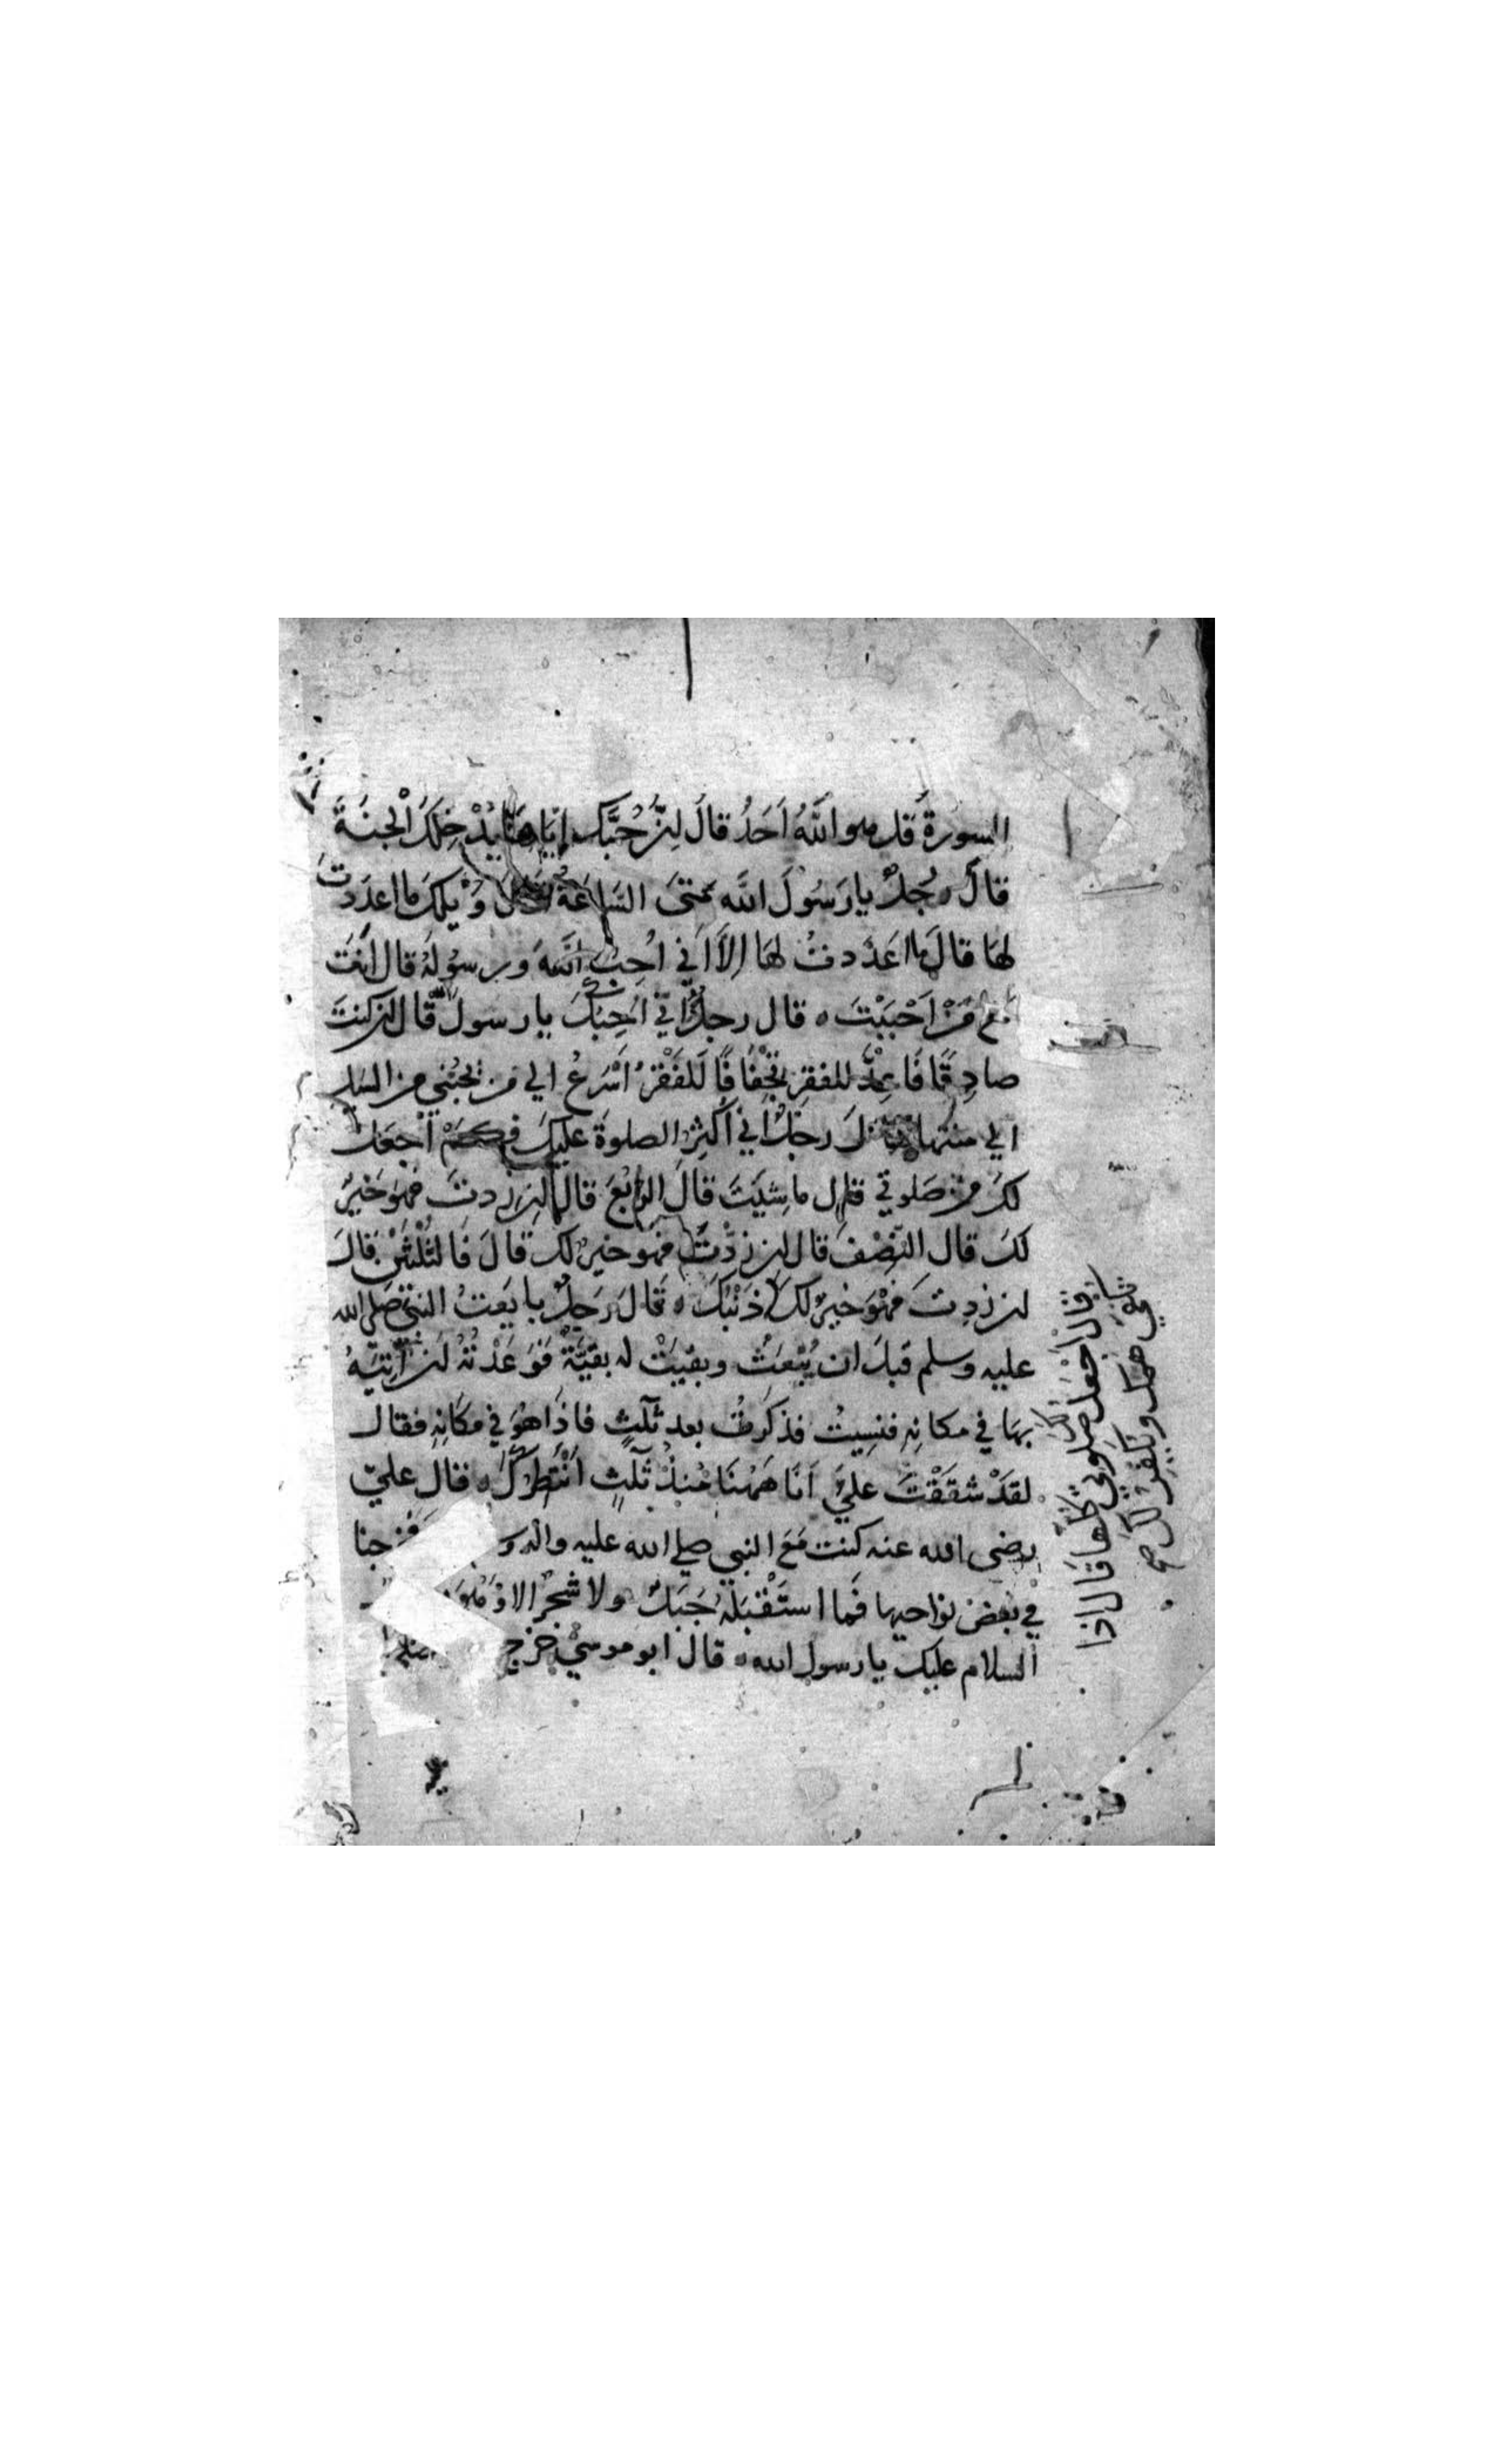 السورةَ قل هو اللّٰهُ اَحَدُ قالَ اِنَّ حُبَّكَ اِيّاهَا يُدْخِلُكَ الْجنَةَ
قالَ رجُلٌ يا رَسُولَ اللّٰه مَتىَ السَّاعَةُ قال وَيْلكَ ما اعدَدتَ
لهَا قالَ ما اعَدَدتُ لهَا اِلاَّ اَني اُحِبُّ اللّٰهَ ورسُولَهُ قال اَنتَ
مَعَ مَنْ اَحْبَبْتَ ۰ قال رجلٌ اِنّي اُحِبُّكَ يا رسول اللّٰه قال اِن كنتَ
صادِقًا فَاعِدَّ للفقرِ تِجْفافًا لَلفَقْرُ اَسْرَعُ الي مَن يُحِبُّني من السَيلِ
الي منتهاه قال رجلٌ اني اُكثِرُ الصلوةَ عليكَ فكَمْ اَجْعَلُ
لكَ من صَلوتي قال ما شِيَتَ قالَ الرّبُعَ قال ما شيت اِن زِدتَ فهوَ خَيرٌ
لكَ قال النّصْفَ قال اِن زِدْتَ فهو خيرٌ لكَ قالَ فَالثُلُثَيْنِ قالَ
اِن زِدتَ فهْوَ خيرٌ لكَ ذَنْبُكَ ۰ قَالَ رَجلٌ بايَعتُ النبيَّ صَلي الله
عليه وسلم قبلَ ان يُبْعَثَ وبقيَتْ له بقيَّةٌ فَوَعَدْتُهُ اَن اٰتِيَهُ
بهَا في مكانِهِ فنسِيتُ فذكَرتُ بعد ثلٰثٍ فاذَا هوَ في مكَانِهِ فقال
لقدْ شقَقْتَ عليَّ اَنا هَهُنَا مُنذُ ثلٰثٍ اَنْتَظِرُكَ ۰ قال عليّ
رضى الله عنه كنت مَعَ النبي صلي الله عليه واله فخرجنا
في بعض نواحيها فَما استَقْبَلَهُ جَبَلٌ ولا شجرٌ الا وَهُوَ
السلام عليك يا رسول الله ۰ قال ابو موسيٰ خرج
قال اَجْعَل لك صلوتي كلها قال اذا
همك ويكفر لك